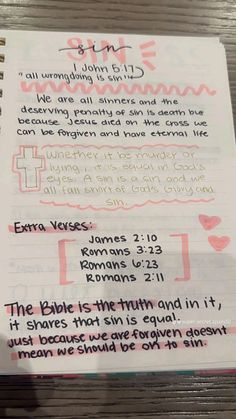 sin
SIN
1 John 5:17
"all wrongdoing is sin"
We are all sinners and the
deserving penalty of sin is death but
because Jesus died on the cross we
can be forgiven and have eternal life
Whether it be murder or
lying, it is equal in God's
eyes. A sin is a sin and we
all fall short of God's Glory and
sin.
Extra Verses:
James 2:10
Romans 3:23
Romans 6:23
Romans 2:11
The Bible is the truth and in it,
it shares that sin is equal.
Just because we are forgiven doesnt
mean we should be on to sin.